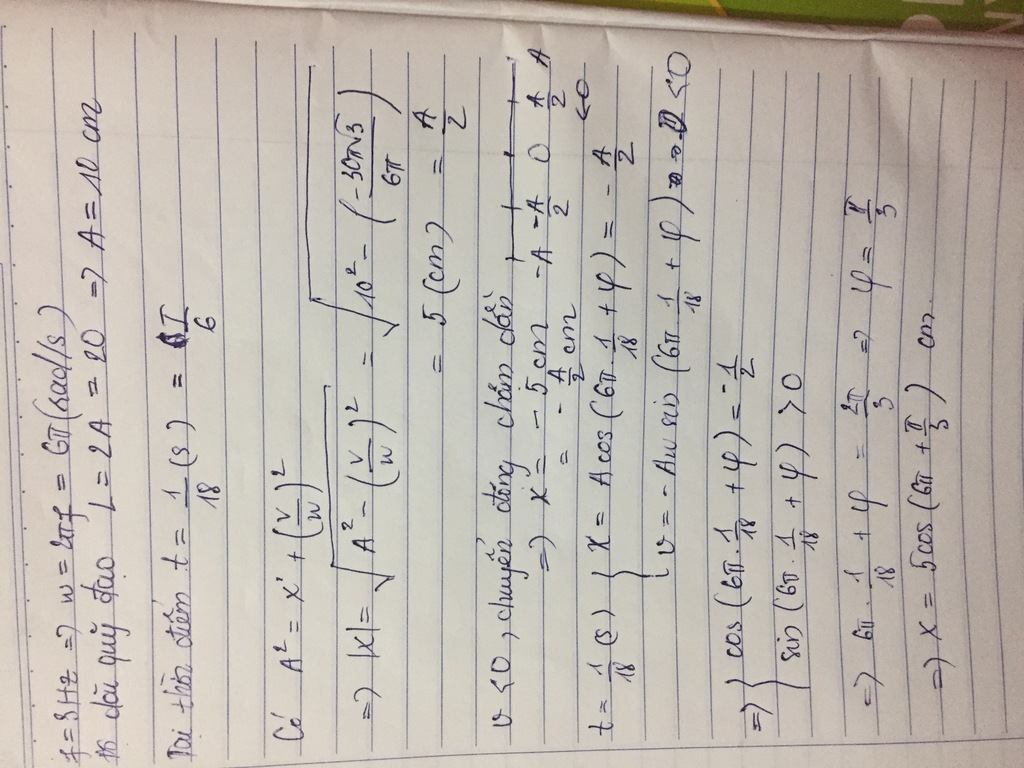 f = 3Hz => w = 2πf = 6π (rad/s)
độ dài quỹ đạo L = 2A = 20 => A = 10 cm
Tại thời điểm t = 1/18 (s) = T/6
Có A² = x² + (v/w)²
=> |x| = √(A² - (v/w)²) = √(10² - (-30π√3/6π))
= 5 (cm) = A/2
v <0, chuyển động chậm dần
-A -A/2 0 A/2 A
=> x = - 5 cm
= - A/2 cm
<0
t = 1/18 (s) } x = A cos (6π. 1/18 + φ) = - A/2
v = - Aw sin (6π. 1/18 + φ) <0
=> } cos (6π. 1/18 + φ) = -1/2
sin (6π. 1/18 + φ) > 0
=> 6π. 1/18 + φ = 2π/3 => φ = π/3
=> x = 5cos (6π + π/3) cm.